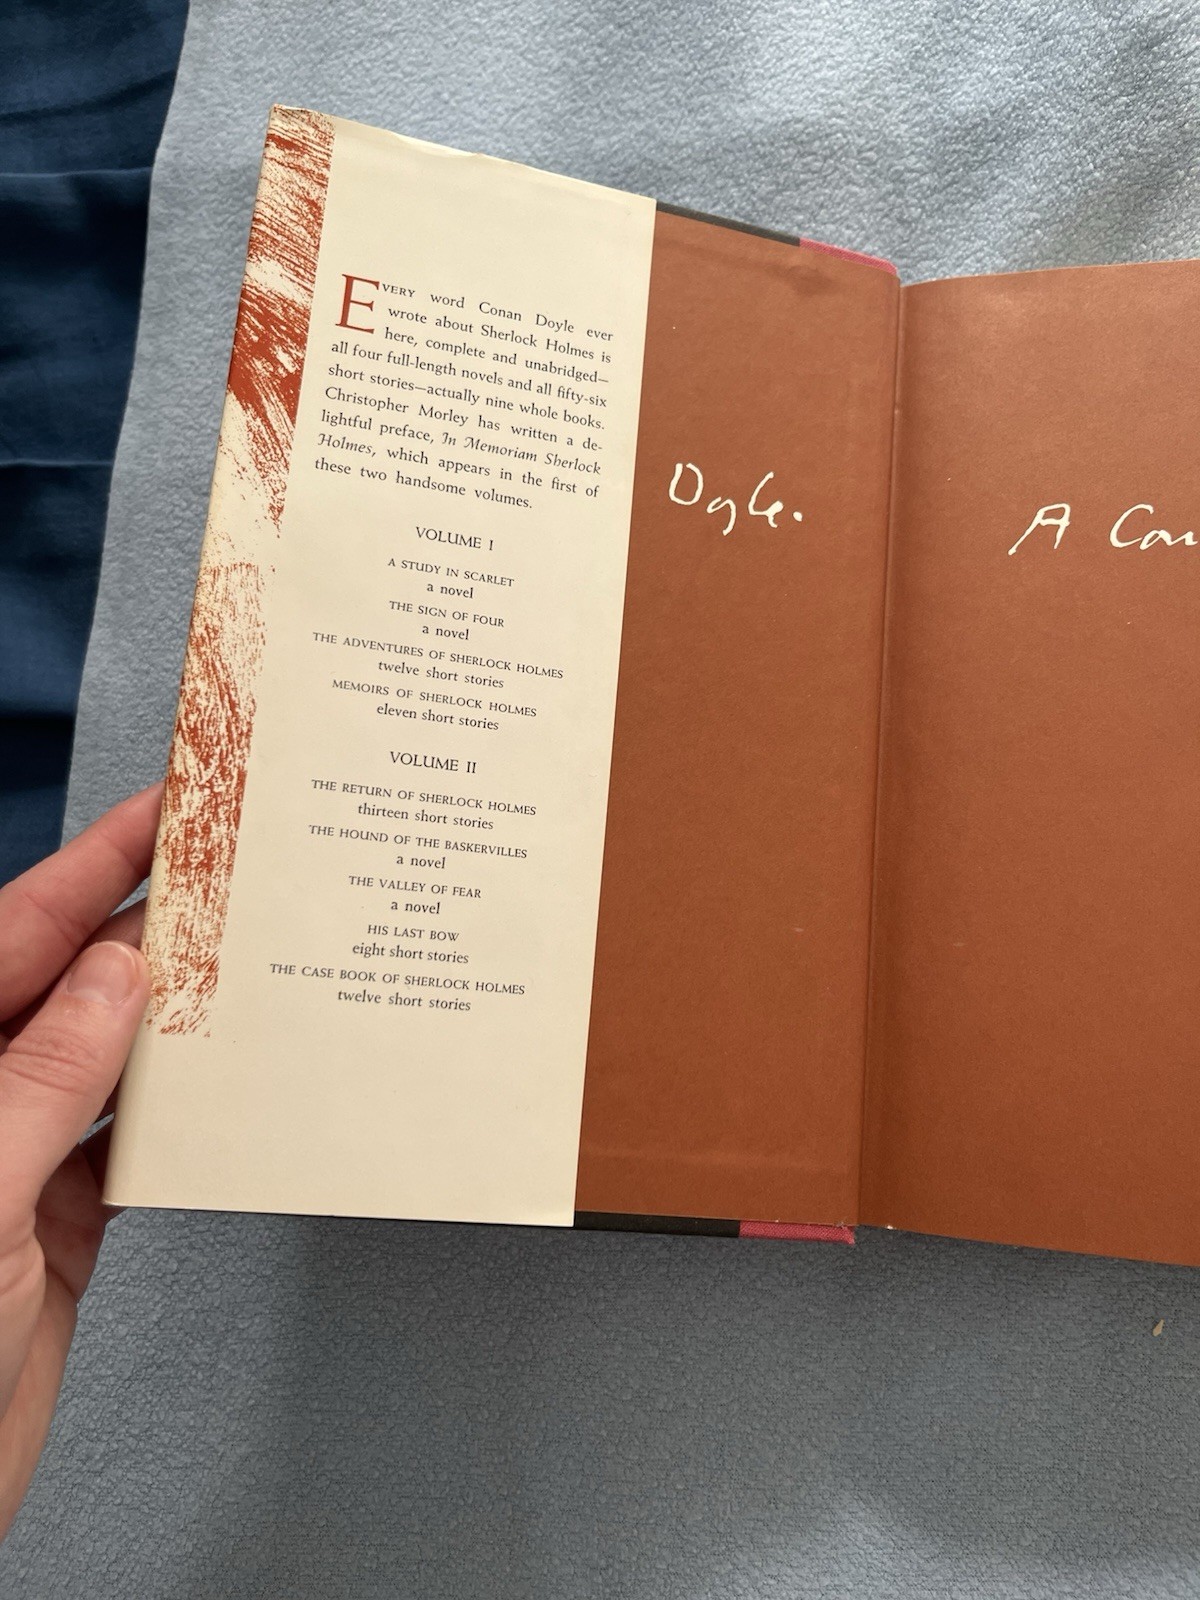 EVERY word Conan Doyle ever
wrote about Sherlock Holmes is
here, complete and unabridged—
all four full-length novels and all fifty-six
short stories—actually nine whole books.
Christopher Morley has written a de-
lightful preface, In Memoriam Sherlock
Holmes, which appears in the first of
these two handsome volumes.
VOLUME I
A STUDY IN SCARLET
a novel
THE SIGN OF FOUR
a novel
THE ADVENTURES OF SHERLOCK HOLMES
twelve short stories
MEMOIRS OF SHERLOCK HOLMES
eleven short stories
VOLUME II
THE RETURN OF SHERLOCK HOLMES
thirteen short stories
THE HOUND OF THE BASKERVILLES
a novel
THE VALLEY OF FEAR
a novel
HIS LAST BOW
eight short stories
THE CASE BOOK OF SHERLOCK HOLMES
twelve short stories
Doyle.
A Con